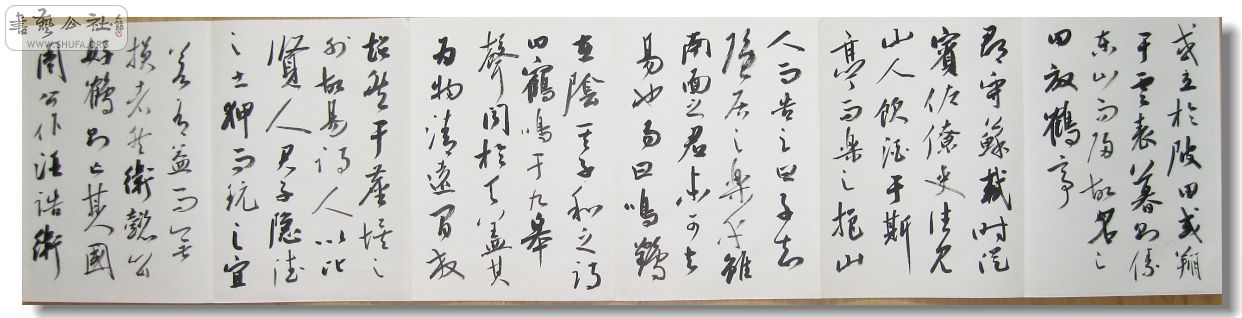 書藝公社
WWW.SHUFA.ORG
或立於陂田或翔
于雲表暮則傃
東山而歸故名之
曰放鶴亭
郡守蘇軾時從
賓佐僚吏往見
山人飲酒于斯
亭而樂之挹山
人而告之曰子知
隱居之樂乎雖
南面之君未可與
易也易曰鳴鶴
在陰其子和之詩
曰鶴鳴于九皋
聲聞於天蓋其
為物清遠閒放
超然于塵埃之
外故易詩人以比
賢人君子隱德
之士狎而玩之宜
若有益而無
損者然衛懿公
好鶴則亡其國
周公作酒誥衛